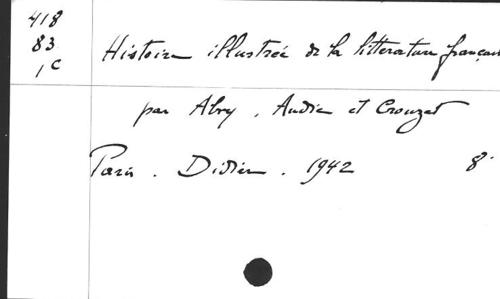 418
83
1 C
Histoire illustrée de la littérature française
par Abry, Audic et Crouzet
Paris. Didier. 1942 8°